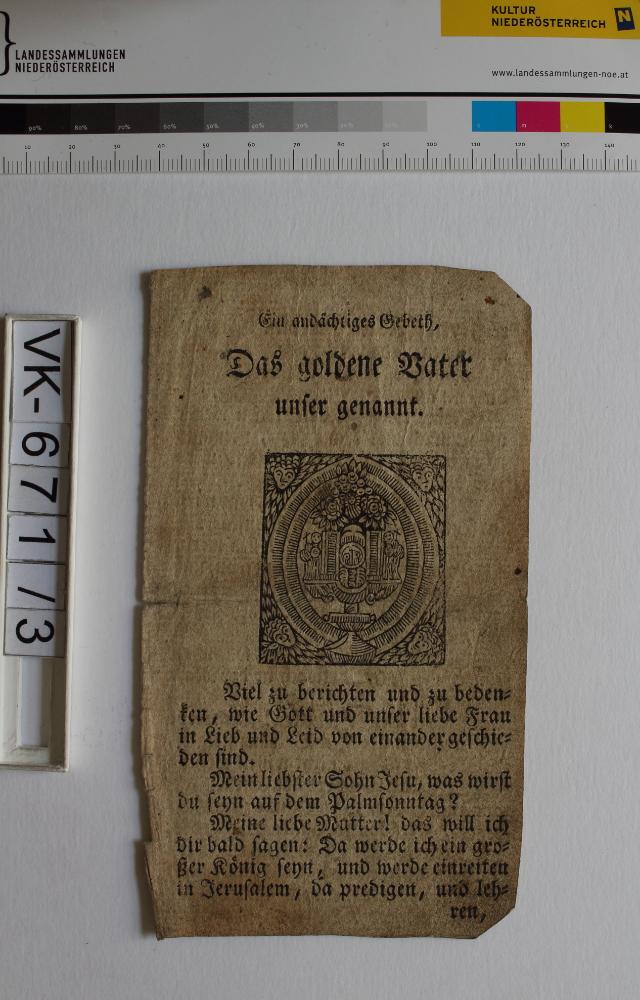 KULTUR
NIEDERÖSTERREICH N
LANDESSAMMLUNGEN
NIEDERÖSTERREICH
www.landessammlungen-noe.at
90% 80% 70% 60% 50% 40% 30% 20% 10% c m y k
10 20 30 40 50 60 70 80 90 100 110 120 130 140
VK-671/3
Ein andächtiges Gebeth,
Das goldene Vater
unser genannt.
Viel zu berichten und zu beden-
ken, wie Gott und unser liebe Frau
in Lieb und Leid von einander geschie-
den sind.
Mein liebster Sohn Jesu, was wirst
du seyn auf dem Palmsonntag?
Meine liebe Mutter! das will ich
dir bald sagen: Da werde ich ein gro-
ßer König seyn, und werde einreiten
in Jerusalem, da predigen, und leh-
ren,